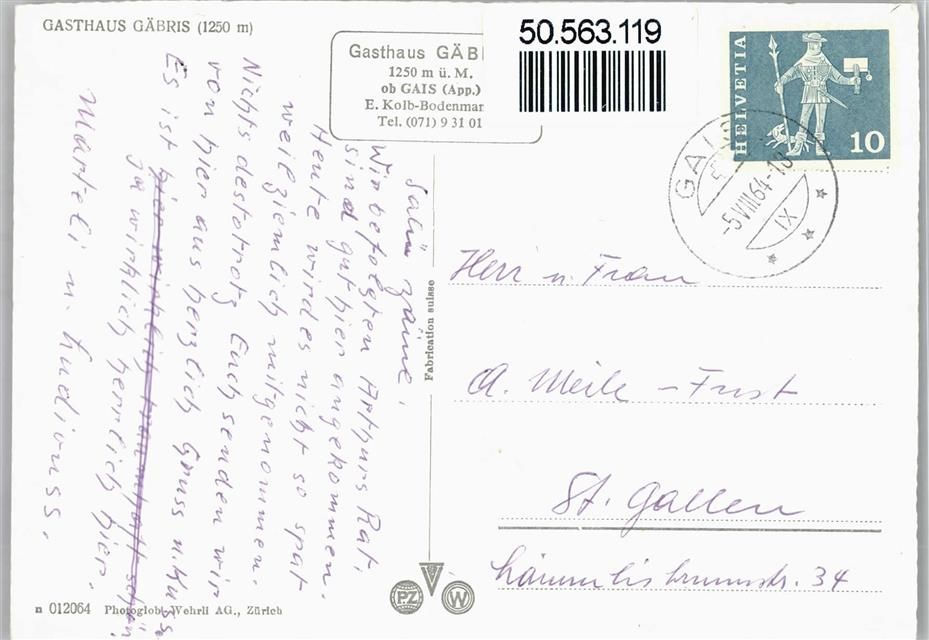 GASTHAUS GÄBRIS (1250 m)
Gasthaus GÄB
1250 m ü. M.
ob GAIS (App.)
E. Kolb-Bodenmar
Tel. (071) 9 31 01
50.563.119
HELVETIA
10
GAIS
-5.VIII.64-18
IX
Salü zäme,
Wir befolgten Arthurs Rat,
sind gut hier angekommen.
Heute wird es nicht so spät
weil ziemlich mitgenommen.
Nichts destotrotz Euch senden wir
von hier aus herzlich Gruss u. Kuss
Es ist hier wirklich traumhaft schön
ja wirklich herrlich hier.
Marteli u.
Fabrication suisse
Herr u. Frau
A. Meile - Fust
St. Gallen
Lämmlisbrunnstr. 34
PZ
V
W
n 012064 Photoglob-Wehrli AG., Zürich